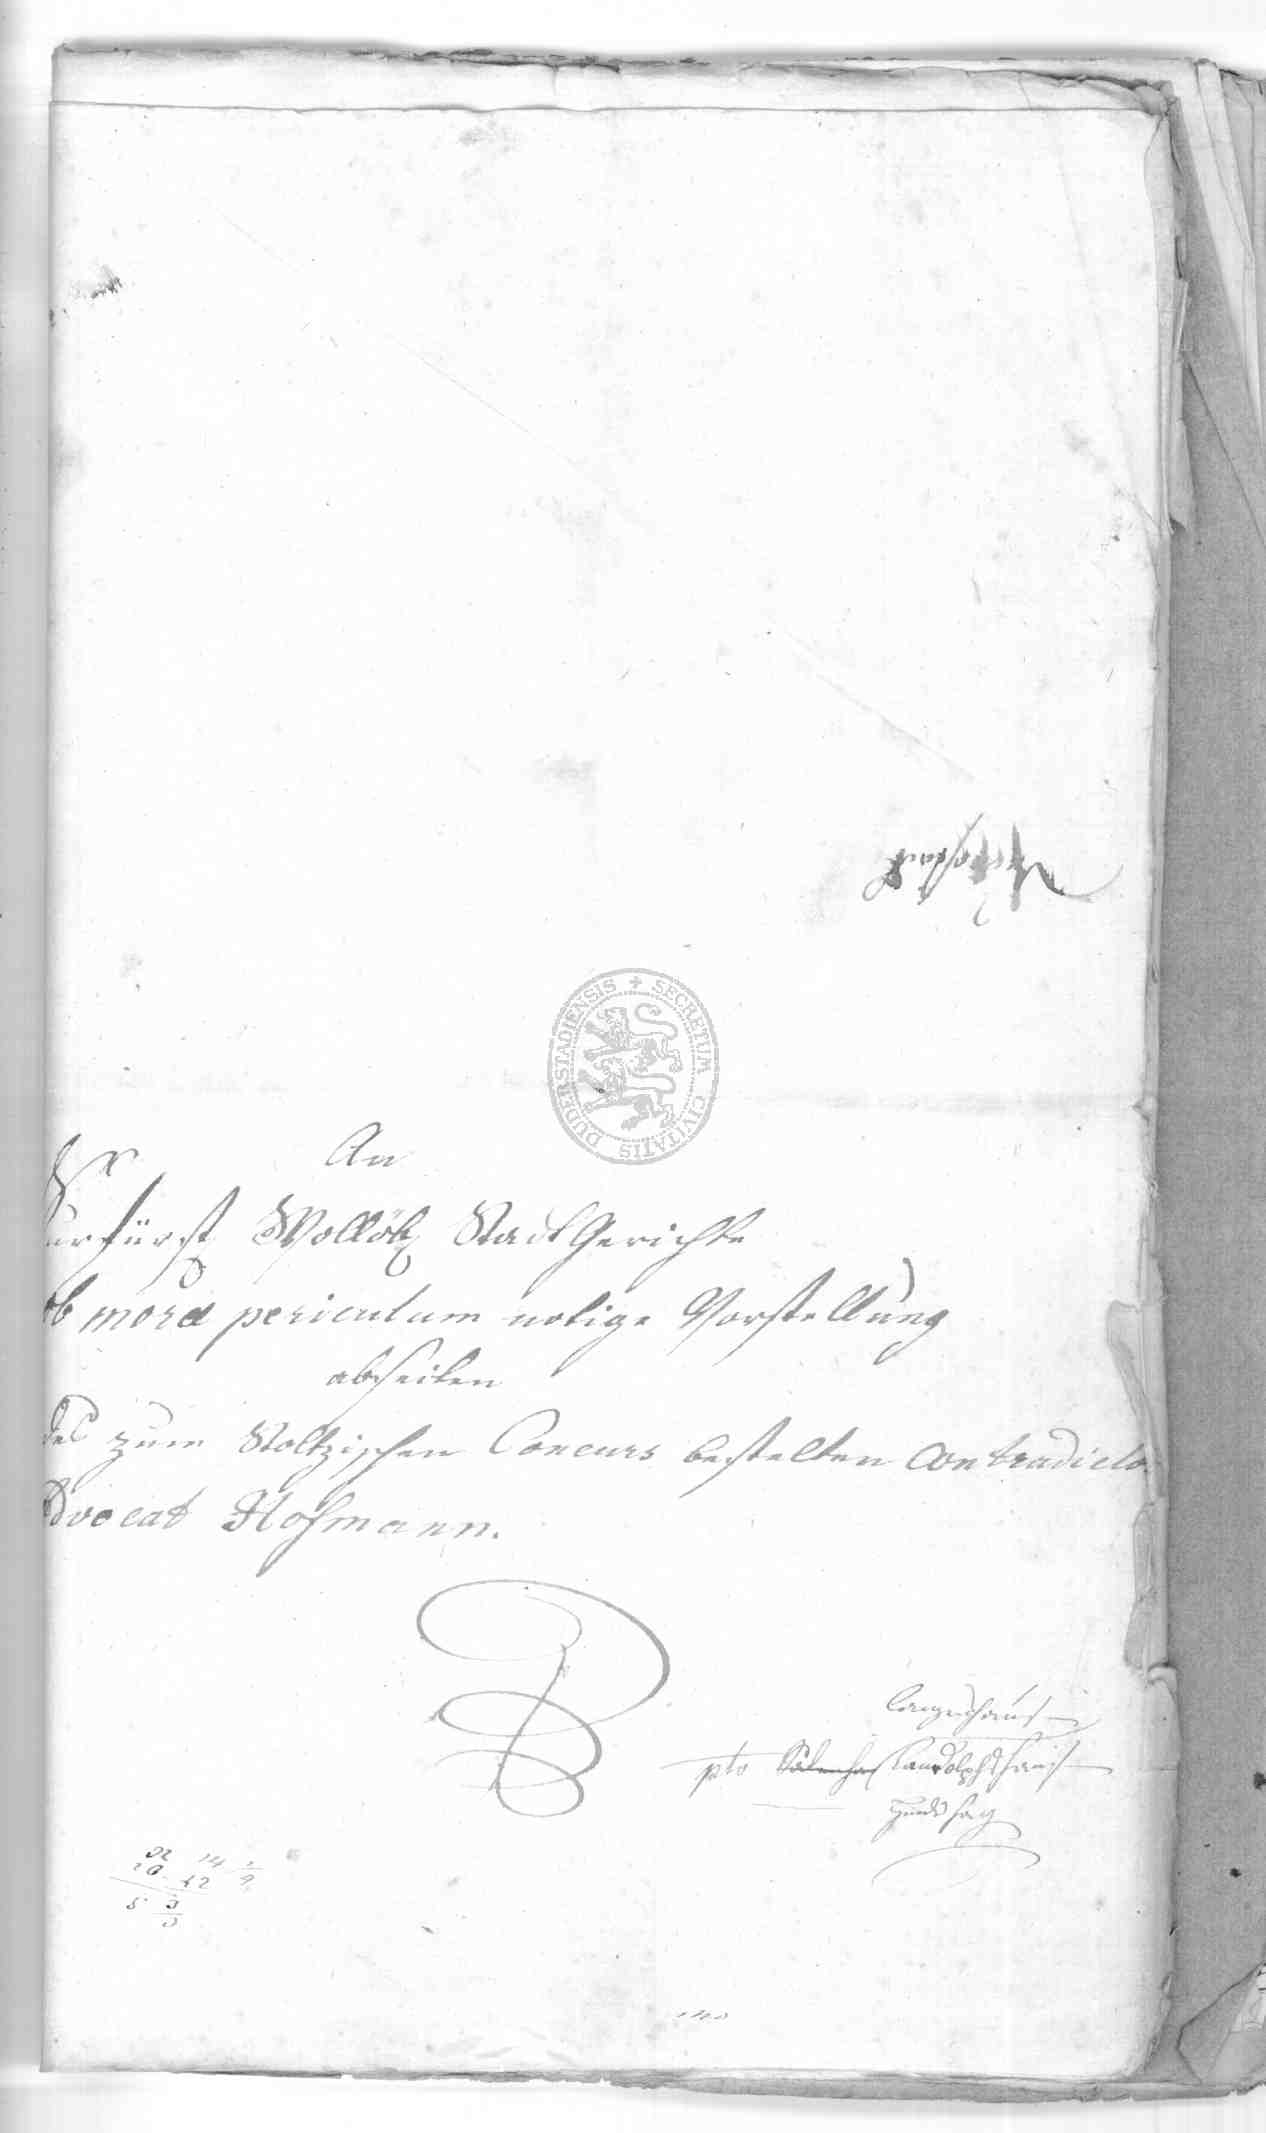 SECRETUM CIVITATIS DUDERSTADIENSIS
An
urfürst Wollöb StadtGerichte
ob mora periculum notige Vorstellung
abseiten
des zum Stoltzischen Concurs bestelten Contradicto
Advocat Hofmann.
Langenhaus
pto Landolphshaus